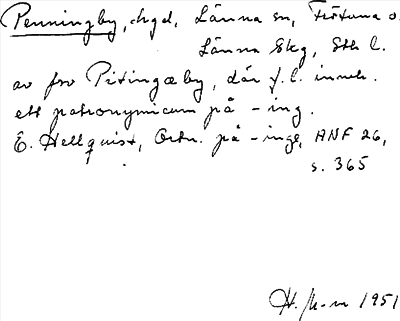 Penningby, hgd, Länna sn, Frötuna o.
Länna skg, Sth l.
av fro Pitingæby, där f.l. inneh.
ett patronymicum på -ing.
E. Hellquist, Ortn. på -inge, ANF 26,
s. 365
1951